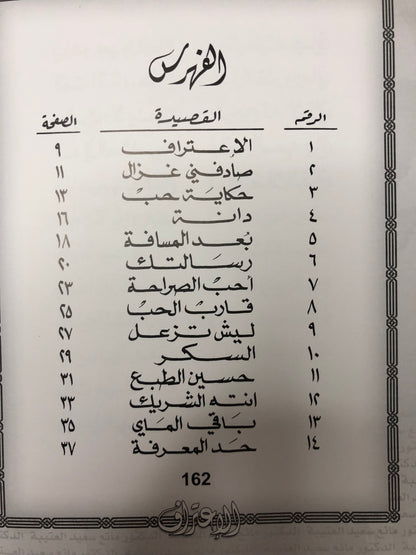 الفهرس
الرقم القصيدة الصفحة
١ الاعتراف ٩
٢ صادفني غزال ١١
٣ حكاية حب ١٣
٤ دانة ١٦
٥ بُعد المسافة ١٨
٦ رسالتك ٢٠
٧ أحب الصراحة ٢٣
٨ قارب الحب ٢٥
٩ ليش تزعل ٢٧
١٠ السكر ٢٩
١١ حسين الطبع ٣١
١٢ انته الشريك ٣٣
١٣ باقي الماي ٣٥
١٤ حد المعرفة ٣٧
162
الاعتراف